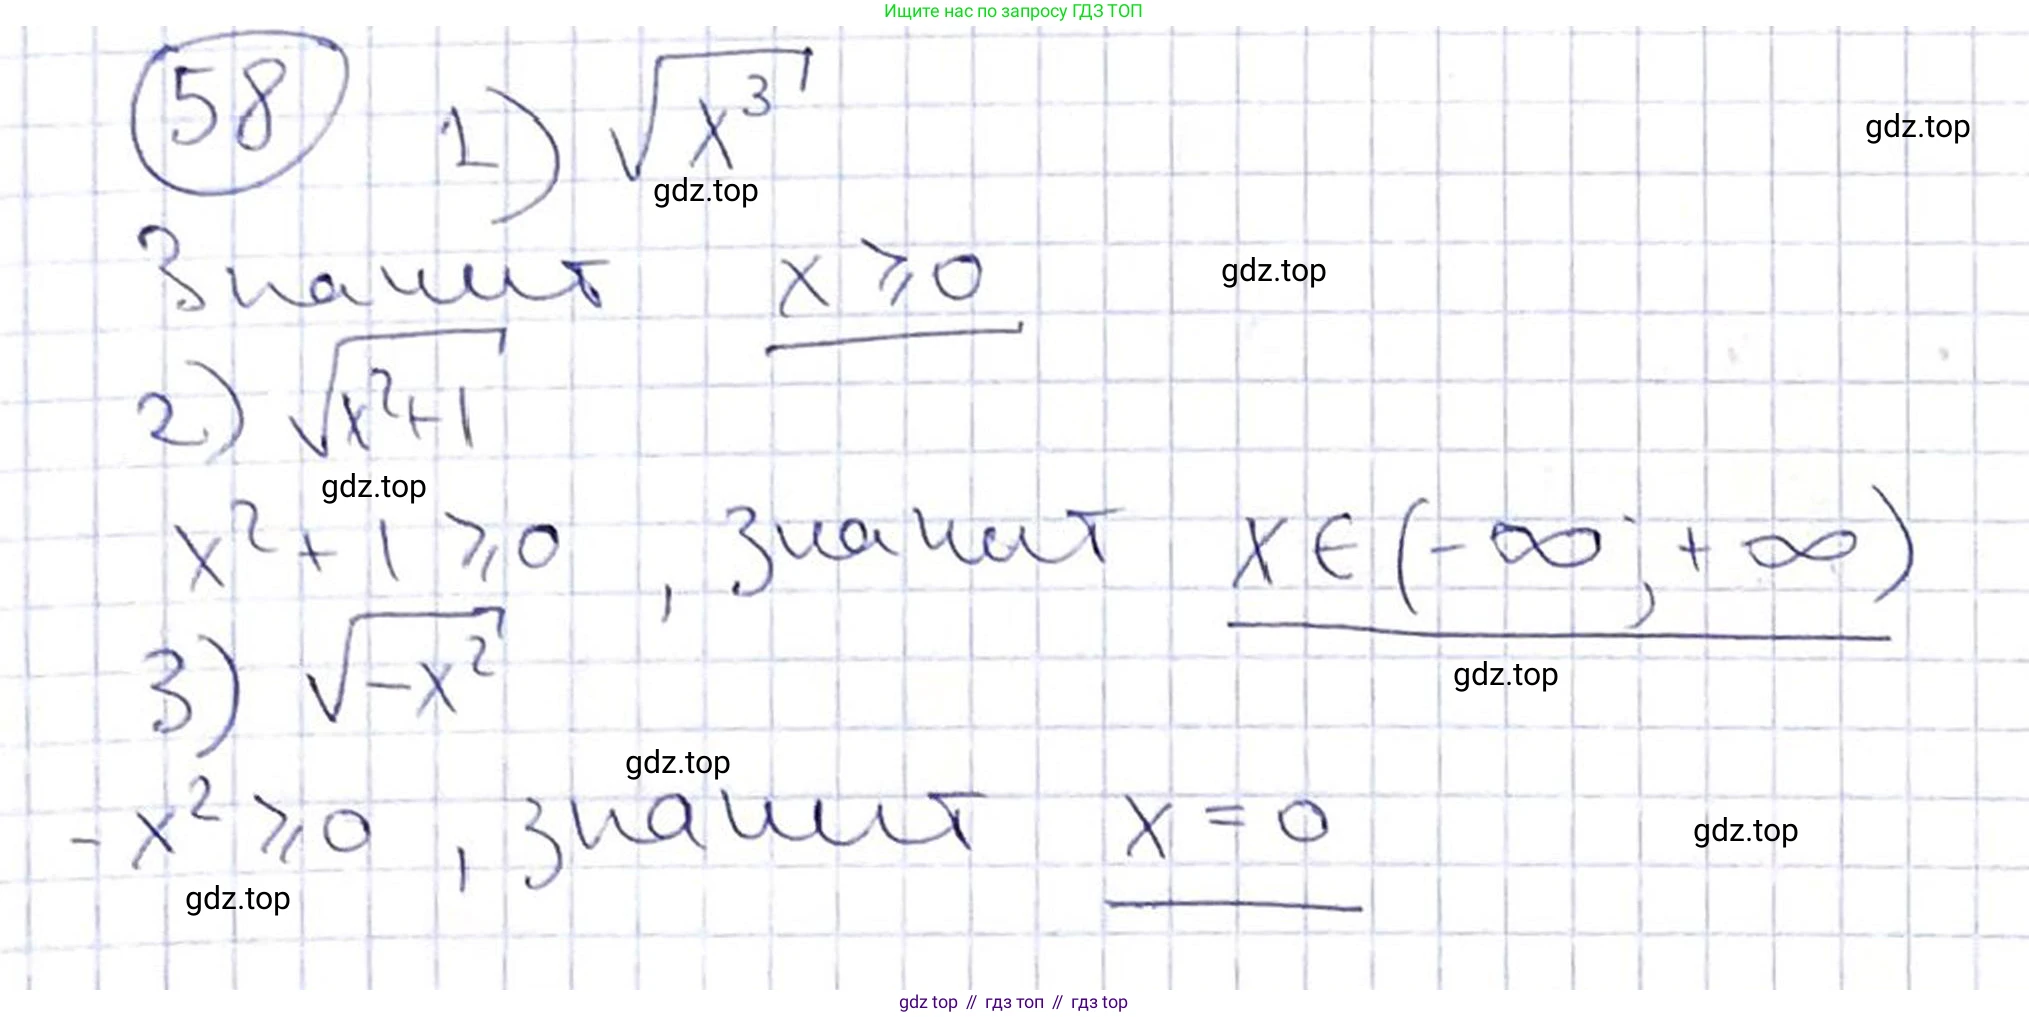 Ищите нас по запросу ГДЗ ТОП
58 1) √x³
gdz.top
gdz.top
Значит x ⩾ 0
gdz.top
2) √x²+1
gdz.top
x² + 1 ⩾ 0 , значит x ∈ (-∞; +∞)
3) √-x²
gdz.top
gdz.top
-x² ⩾ 0 , значит x = 0
gdz.top
gdz.top
gdz top // гдз топ // гдз top